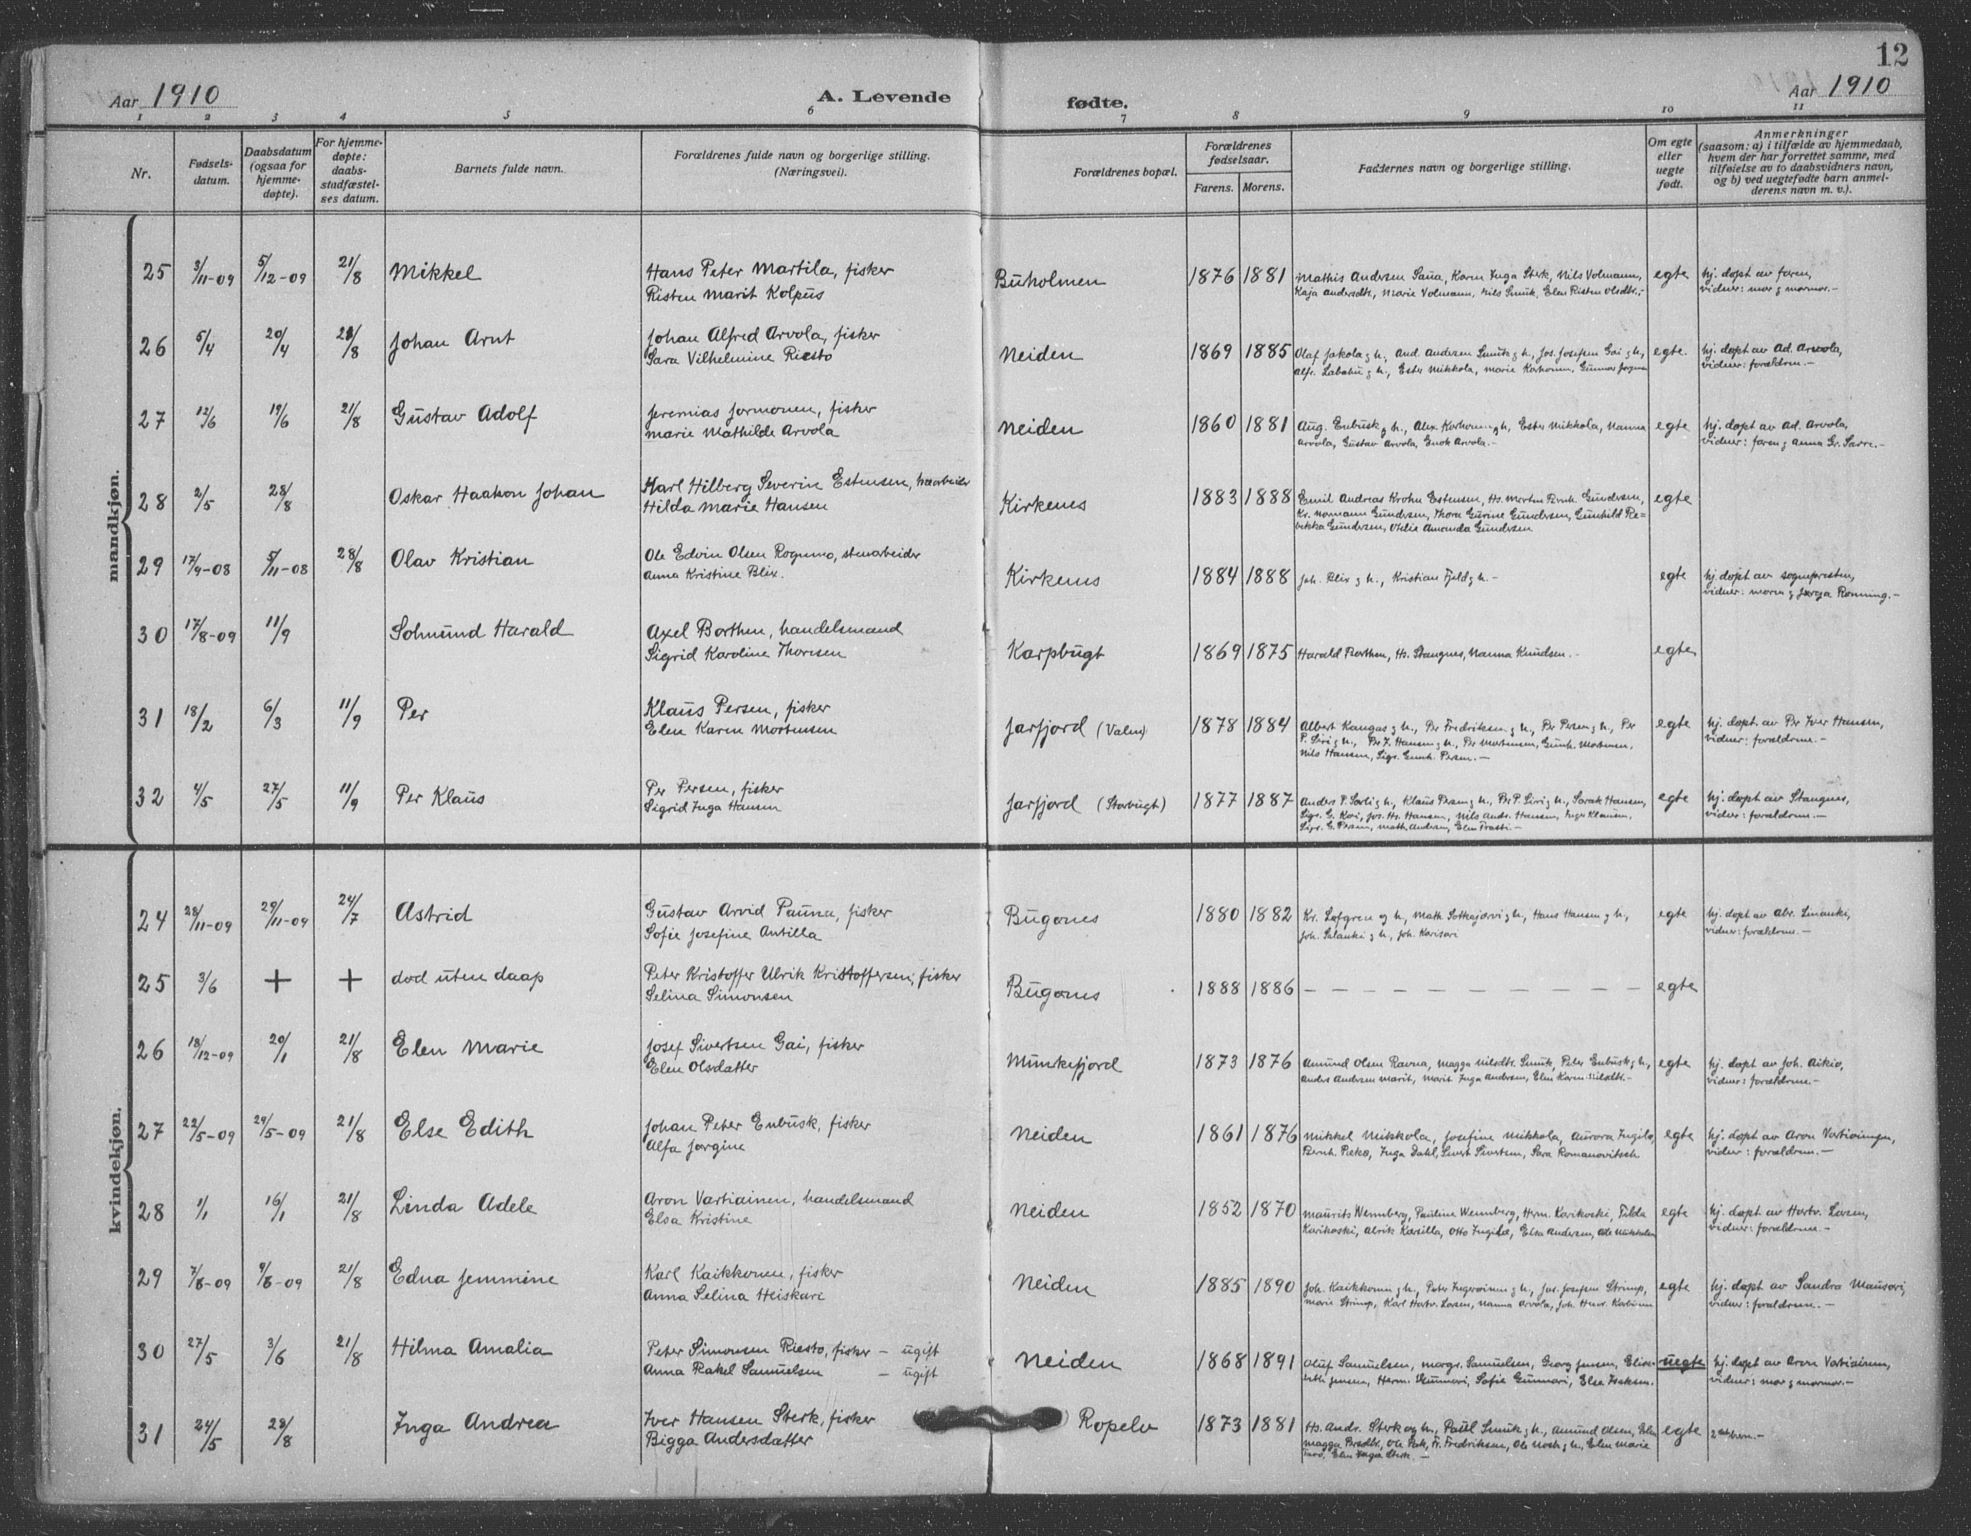 12
Aar 1910 A. Levende fødte. Aar 1910
1 2 3 4 5 6 7 8 9 10 11
Nr. Fødsels-datum. Daabsdatum (ogsaa for hjemme-døpte). For hjemme-døpte: daabs-stadfæstel-ses datum. Barnets fulde navn. Forældrenes fulde navn og borgerlige stilling. (Næringsvei). Forældrenes bopæl. Forældrenes fødselsaar. Farens. Morens. Faddernes navn og borgerlige stilling. Om egte eller uegte født. Anmerkninger (saasom: a) i tilfælde av hjemmedaab, hvem der har forrettet samme, med tilføielse av to daabsvidners navn, og b) ved uegtefødte barn anmel-derens navn m. v.).
mandkjøn.
25 3/11-09 5/12-09 21/8 Mikkel Hans Peter Martila, fisker Buholmen 1876 1881 Mathis Andersen Saua, Karen Inga Sterk, Nils Volmann, egte hj. døpt av faren,
Risten Marit Kolpus Kaja Andersdtr., Marie Volmann, Nils Smuk, Elen Risten Olsdtr.- vidner: mor og mormor.-
26 5/4 20/4 28/8 Johan Arnt Johan Alfred Arvola, fisker Neiden 1869 1885 Olaf Jakola g h., And. Andersen Smuk g h., Jos. Josefsen Gai g h., egte. hj. døpt av Ad. Arvola,
Sara Vilhelmine Riesto Alfr. Labahü g h., Ester Mikkola, Marie Korhonen, Gunnar vidner: forældrene.-
27 12/6 19/6 21/8 Gustav Adolf Jeremias Jormonen, fisker Neiden 1860 1881 Aug. Enbusk g h., Alex Korhonen g h., Ester Mikkola, Nanna egte hj. døpt av Ad. Arvola,
Marie Mathilde Arvola Arvola, Gustav Arvola, Enok Arvola.- vidner: faren g Anna Gr. Sarre.-
28 2/5 28/8 Oskar Haakon Johan Karl Hilberg Severin Estensen, Kirkenes 1883 1888 Emil Andreas Krohn Estensen, Hs. Morten Bernh. Gundersen, egte
Hilda Marie Hansen Kr. Normann Gundersen, Thora Gurine Gundersen, Gunhild Re=
bekka Gundersen, Otelie Amanda Gundersen
29 17/9-08 5/11-08 28/8 Olav Kristian Ole Edvin Olsen Rognmo, stenarbeider Kirkenes 1884 1888 Joh. Blix g h., Kristian Fjeld g h.- egte hj. døpt av sognepresten,
Anna Kristine Blix. vidner: moren g Rønning.-
30 17/8-09 11/9 Solmund Harald Axel Borthen, handelsmand Karpbugt 1869 1875 Harald Borthen, Hs. Stangnes, Nanna Knudsen.- egte
Sigrid Karoline Thoresen
31 18/2 6/3 11/9 Per Klaus Persen, fisker Jarfjord (Valen) 1878 1884 Albert Kangas g h., Per Fredriksen g h., Per Persen g h., Per egte hj. døpt av Per Iver Hansen,
Elen Karen Mortensen P. Siri g h., Per I. Hansen g h., Per Mortensen, Gunh. Mortensen, vidner: forældrene.-
Nils Hansen, Sigr. Gunh. Persen.-
32 4/5 27/5 11/9 Per Klaus Per Persen, fisker Jarfjord (Storbugt) 1877 1887 Anders P. Sarli g h., Klaus Persen g h., Per P. Siri g h., Sarak Hansen, egte hj. døpt av Stangnes,
Sigrid Inga Hansen Sigr. G. Koi, Jos. Hs. Hansen, Nils Andr. Hansen, Inga Klausen, vidner: forældrene.-
Sigr. G. Persen, Math. Andersen, Elen Prasti.-
kvindekjøn.
24 28/11-09 29/11-09 24/7 Astrid Gustav Arvid Pauna, fisker Bugønes 1880 1882 Kr. Løfgren og h., Math. Sotkajärvi g h., Hans Hansen g h., egte hj. døpt av Abr.
Sofie Josefine Antilla Joh. Salanki g h., Joh. Karisari vidner: forældrene.-
25 3/6 + + død uten daap Peter Kristoffer Ulrik Kristoffersen, fisker Bugønes 1888 1886 – – – – – – – – – egte
Selina Simonsen
26 18/12-09 20/1 21/8 Elen Marie Josef Sivertsen Gai, fisker Munkefjord 1873 1876 Amund Olsen Ravna, Magga Nilsdtr. Smuk, Peter Enbusk g h., egte hj. døpt av Joh. Aikio,
Elen Olsdatter Anders Andersen Marit, Marit Inga Andersen, Elen Karen Nilsdtr.- vidner: forældrene.-
27 22/5-09 29/5-09 21/8 Else Edith Johan Peter Enbusk, fisker Neiden 1861 1876 Mikkel Mikkola, Josefine Mikkola, Aurora Ingilä, egte hj. døpt av Aron Vartiainen,
Alfa Jørgine Bernh. Pækø, Inga Dahl, Sivert Sivertsen, Sara Romanovitsch vidner: forældrene.-
28 1/1 16/1 21/8 Linda Adele Aron Vartiainen, handelsmand Neiden 1852 1870 Maurits Wennberg, Pauline Wennberg, Herm. Karikoski, Tilda egte hj. døpt av Hartv. Larsen,
Elsa Kristine Karikoski, Ulrik Karsilla, Otto Ingilæ, Elsa Andersen, Ole Mikkolen vidner: forældrene.-
29 7/8-09 9/8-09 21/8 Edna Jemmine Karl Kaikkonen, fisker Neiden 1885 1890 Joh. Kaikkonen g h., Peter Ingervinen g h., Jos. Josefsen Strimp, egte hj. døpt av Sandra Mausari,
Anna Selina Heiskari Marie Strimp, Karl Hartv. Larsen, Nanna Arvola, Joh. Henr. vidner: forældrene.-
30 27/5 3/6 21/8 Hilma Amalia Peter Simonsen Riesto, fisker - ugift Neiden 1868 1891 Oluf Samuelsen, Margr. Samuelsen, Georg Jensen, Elisa- uegte hj. døpt av Aron Vartiainen,
Anna Rakel Samuelsen - ugift beth Jensen, Herm. Gunnari, Sofie Gunnari, Else Isaksen. vidner: mor g mormor.-
31 24/5 28/8 Inga Andrea Iver Hansen Sterk, fisker Ropelv 1873 1881 Hs. Andr. Sterk og h., Paul Smuk g h., Amund Olsen, Elen egte 2det barn.-
Bigga Andersdatter Magga Persdtr., Ole Pak, Fr. Fredriksen, Ole Nosk g h., Elen Marie
Elen Inga Sterk.-